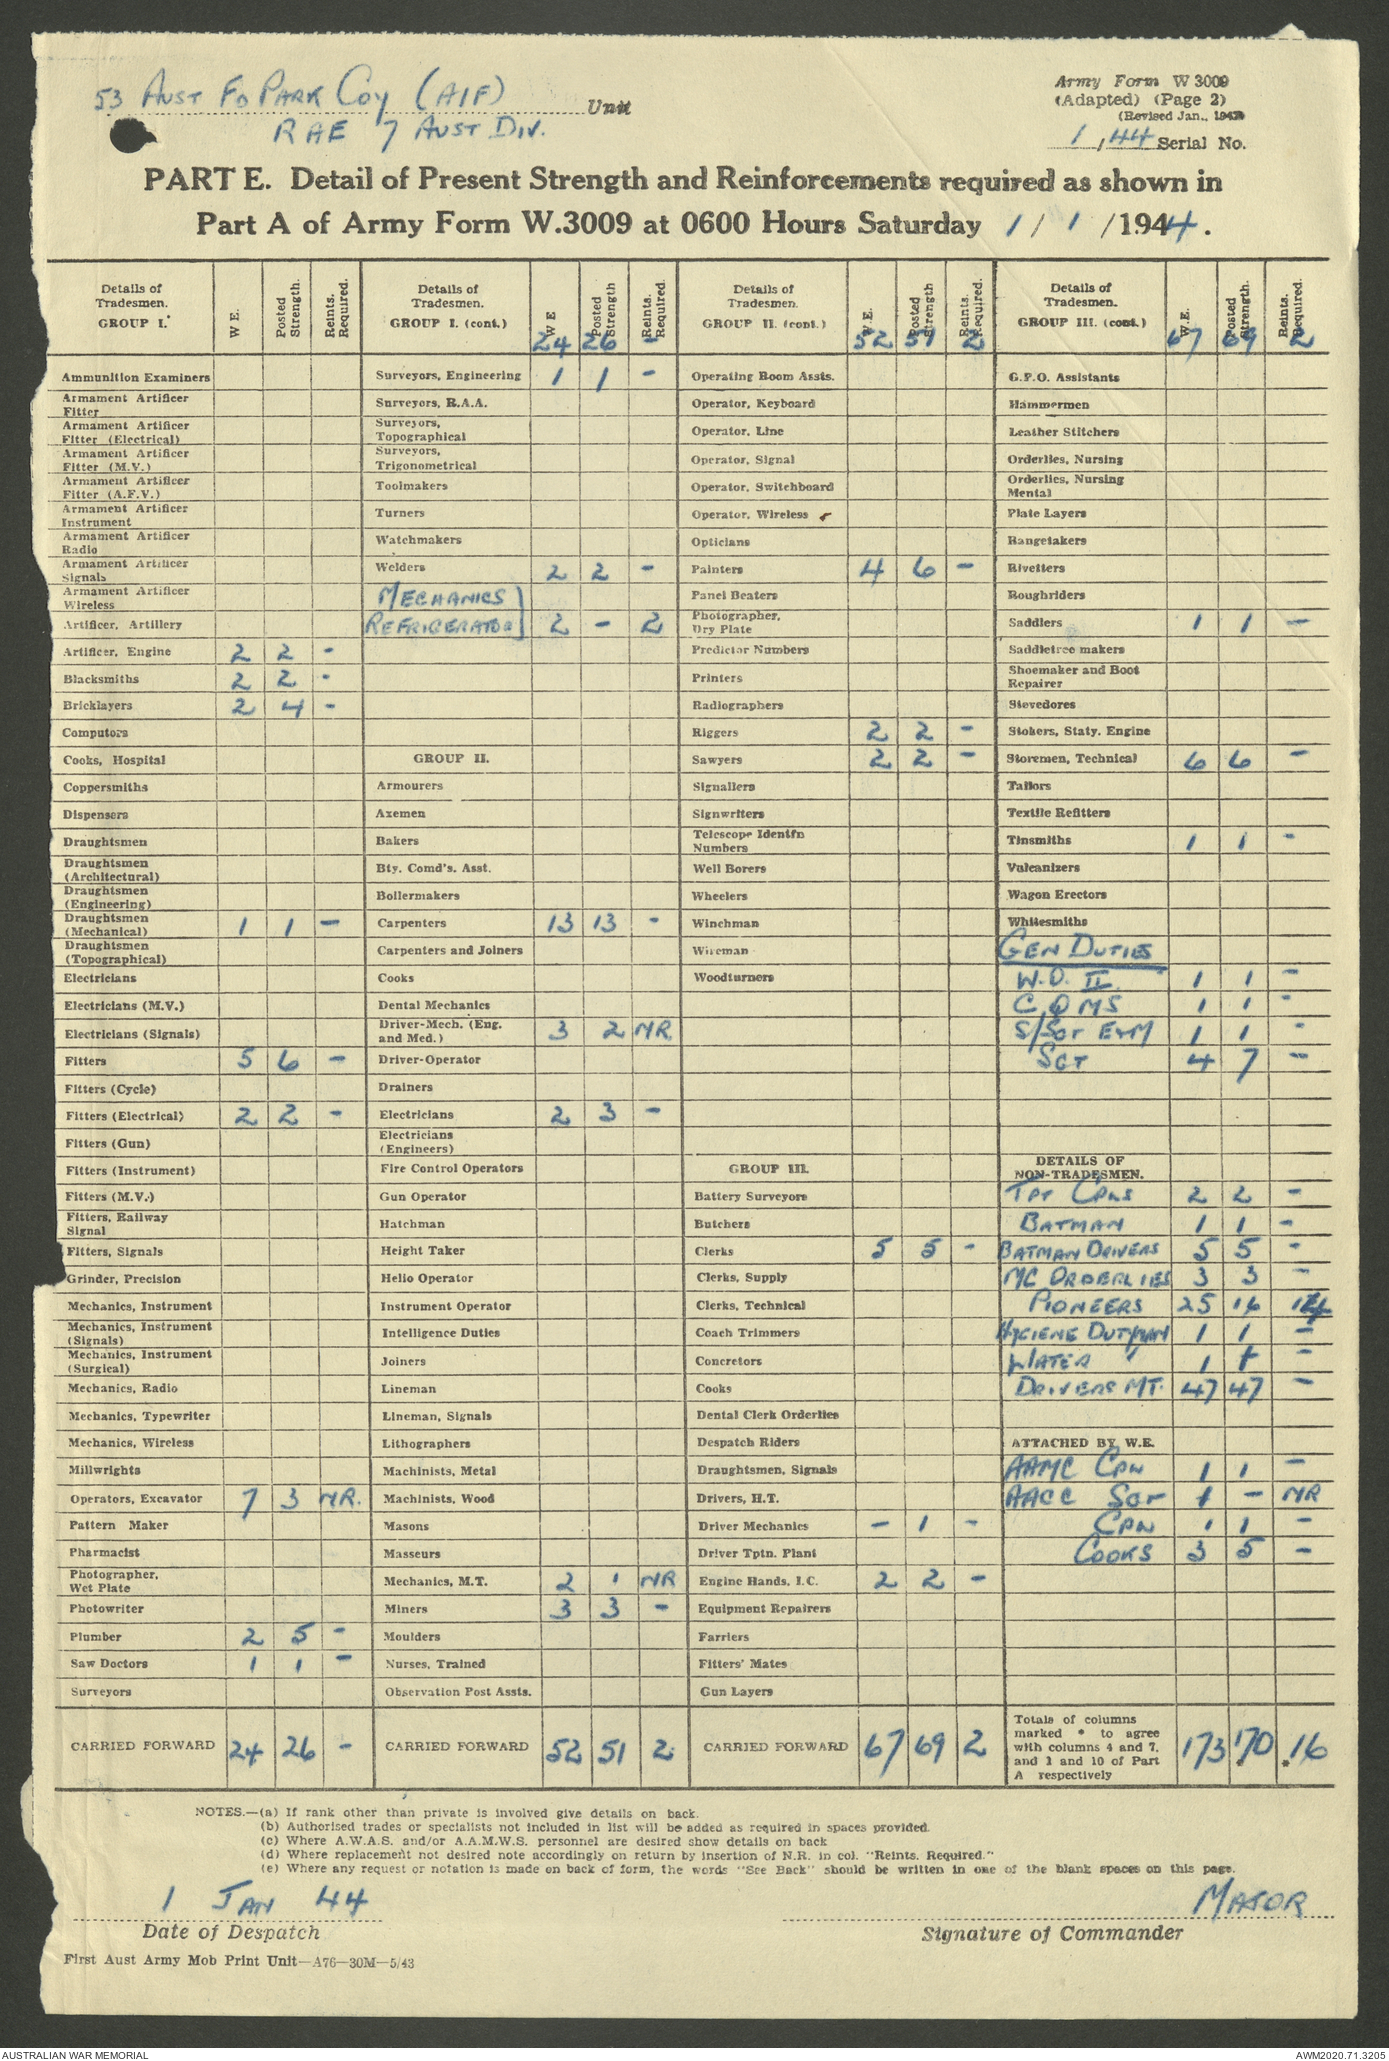 53 AUST FD PARK COY (AIF) Unit
RAE 7 AUST DIV.
Army Form W 3009
(Adapted) (Page 2)
(Revised Jan., 1943)
1/44 Serial No.
PART E. Detail of Present Strength and Reinforcements required as shown in
Part A of Army Form W.3009 at 0600 Hours Saturday 1 / 1 / 1944.
Details of Tradesmen. GROUP I. W E. Posted Strength. Reints. Required.
Ammunition Examiners
Armament Artificer Fitter
Armament Artificer Fitter (Electrical)
Armament Artificer Fitter (M.V.)
Armament Artificer Fitter (A.F.V.)
Armament Artificer Instrument
Armament Artificer Radio
Armament Artificer Signals
Armament Artificer Wireless
Artificer, Artillery
Artificer, Engine 2 2 -
Blacksmiths 2 2 -
Bricklayers 2 4 -
Computors
Cooks, Hospital
Coppersmiths
Dispensers
Draughtsmen
Draughtsmen (Architectural)
Draughtsmen (Engineering)
Draughtsmen (Mechanical) 1 1 -
Draughtsmen (Topographical)
Electricians
Electricians (M.V.)
Electricians (Signals)
Fitters 5 6 -
Fitters (Cycle)
Fitters (Electrical) 2 2 -
Fitters (Gun)
Fitters (Instrument)
Fitters (M.V.)
Fitters, Railway Signal
Fitters, Signals
Grinder, Precision
Mechanics, Instrument
Mechanics, Instrument (Signals)
Mechanics, Instrument (Surgical)
Mechanics, Radio
Mechanics, Typewriter
Mechanics, Wireless
Millwrights
Operators, Excavator 7 3 NR.
Pattern Maker
Pharmacist
Photographer, Wet Plate
Photowriter
Plumber 2 5 -
Saw Doctors 1 1 -
Surveyors
CARRIED FORWARD 24 26 -
Details of Tradesmen. GROUP I. (cont.) W E Posted Strength Reints. Required.
24 26 -
Surveyors, Engineering 1 1 -
Surveyors, R.A.A.
Surveyors, Topographical
Surveyors, Trigonometrical
Toolmakers
Turners
Watchmakers
Welders 2 2 -
MECHANICS
REFRIGERATOR 2 - 2
GROUP II.
Armourers
Axemen
Bakers
Bty. Comd's. Asst.
Boilermakers
Carpenters 13 13 -
Carpenters and Joiners
Cooks
Dental Mechanics
Driver-Mech. (Eng. and Med.) 3 2 NR
Driver-Operator
Drainers
Electricians 2 3 -
Electricians (Engineers)
Fire Control Operators
Gun Operator
Hatchman
Height Taker
Helio Operator
Instrument Operator
Intelligence Duties
Joiners
Lineman
Lineman, Signals
Lithographers
Machinists, Metal
Machinists, Wood
Masons
Masseurs
Mechanics, M.T. 2 1 NR
Miners 3 3 -
Moulders
Nurses, Trained
Observation Post Assts.
CARRIED FORWARD 52 51 2
Details of Tradesmen. GROUP II. (cont.) W.E. Posted Strength Reints. Required.
52 51 2
Operating Room Assts.
Operator, Keyboard
Operator, Line
Operator, Signal
Operator, Switchboard
Operator, Wireless
Opticians
Painters 4 6 -
Panel Beaters
Photographer, Dry Plate
Predictor Numbers
Printers
Radiographers
Riggers 2 2 -
Sawyers 2 2 -
Signallers
Signwriters
Telescope Identfn Numbers
Well Borers
Wheelers
Winchman
Wireman
Woodturners
GROUP III.
Battery Surveyors
Butchers
Clerks 5 5 -
Clerks, Supply
Clerks, Technical
Coach Trimmers
Concretors
Cooks
Dental Clerk Orderlies
Despatch Riders
Draughtsmen, Signals
Drivers, H.T.
Driver Mechanics - 1 -
Driver Tptn. Plant
Engine Hands, I.C. 2 2 -
Equipment Repairers
Farriers
Fitters' Mates
Gun Layers
CARRIED FORWARD 67 69 2
Details of Tradesmen. GROUP III. (cont.) W.E. Posted Strength. Reints. Required.
67 69 2
G.P.O. Assistants
Hammermen
Leather Stitchers
Orderlies, Nursing
Orderlies, Nursing Mental
Plate Layers
Rangetakers
Rivetters
Roughriders
Saddlers 1 1 -
Saddletree makers
Shoemaker and Boot Repairer
Stevedores
Stokers, Staty. Engine
Storemen, Technical 6 6 -
Tailors
Textile Refitters
Tinsmiths 1 1 -
Vulcanizers
Wagon Erectors
Whitesmiths
GEN DUTIES
W.O. II 1 1 -
CQMS 1 1 -
S/SGT E&M 1 1 -
SGT 4 7 -
DETAILS OF NON-TRADESMEN.
TPT CPLS 2 2 -
BATMAN 1 1 -
BATMAN DRIVERS 5 5 -
MC ORDERLIES 3 3 -
PIONEERS 25 16 14
HYGIENE DUTYMAN 1 1 -
WATER " 1 1 -
DRIVERS MT. 47 47 -
ATTACHED BY W.E.
AAMC CPL 1 1 -
AACC SGT 1 - NR
CPL 1 1 -
COOKS 3 5 -
Totals of columns marked * to agree with columns 4 and 7, and 1 and 10 of Part A respectively 173 170 16
NOTES.—(a) If rank other than private is involved give details on back.
(b) Authorised trades or specialists not included in list will be added as required in spaces provided.
(c) Where A.W.A.S. and/or A.A.M.W.S. personnel are desired show details on back
(d) Where replacement not desired note accordingly on return by insertion of N.R. in col. "Reints. Required."
(e) Where any request or notation is made on back of form, the words "See Back" should be written in one of the blank spaces on this page.
1 JAN 44
Date of Despatch
MAJOR
Signature of Commander
First Aust Army Mob Print Unit—A76—30M—5/43
AUSTRALIAN WAR MEMORIAL
AWM2020.71.3205